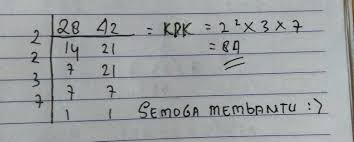 2 28 42 = KPK = 2² × 3 × 7
2 14 21 = 84
3 7 21
7 7 7
1 1 SEMOGA MEMBANTU :)